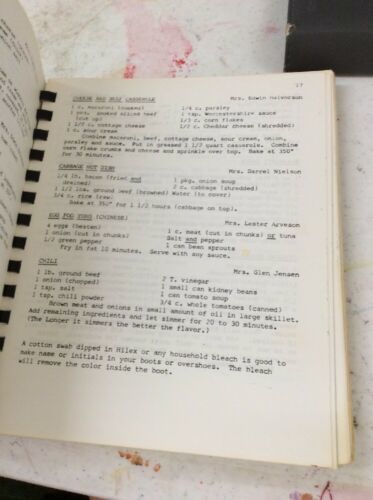 17
CHEESE AND BEEF CASSEROLE Mrs. Edwin Halvorson
1 c. macaroni (cooked) 1/4 c. parsley
1 pkg. smoked sliced beef 1 tsp. Worcestershire sauce
(cut up) 1/3 c. corn flakes
1 1/2 c. cottage cheese 1/2 c. Cheddar cheese (shredded)
1 c. sour cream
Combine macaroni, beef, cottage cheese, sour cream, onion,
parsley and sauce. Put in greased 1 1/2 quart casserole. Combine
corn flake crumbs and cheese and sprinkle over top. Bake at 350°
for 30 minutes.
CABBAGE HOT DISH Mrs. Darrel Nielson
1/4 lb. bacon (fried and 1 pkg. onion soup
drained) 2 c. cabbage (shredded)
1 1/2 lbs. ground beef (browned) Water (to cover)
3/4 c. rice (raw)
Bake at 350° for 1 1/2 hours (cabbage on top).
EGG FOO YUNG (CHINESE) Mrs. Lester Arveson
4 eggs (beaten) 1 c. meat (cut in chunks) or tuna
1 onion (cut in chunks) Salt and pepper
1/2 green pepper 1 can bean sprouts
Fry in fat 10 minutes. Serve with any sauce.
CHILI Mrs. Glen Jensen
1 lb. ground beef 2 T. vinegar
1 onion (chopped) 1 small can kidney beans
1 tsp. salt 1 can tomato soup
1 tsp. chili powder 3/4 c. whole tomatoes (canned)
Brown meat and onions in small amount of oil in large skillet.
Add remaining ingredients and let simmer for 20 to 30 minutes.
(The Longer it simmers the better the flavor.)
A cotton swab dipped in Hilex or any household bleach is good to
make name or initials in your boots or overshoes. The bleach
will remove the color inside the boot.